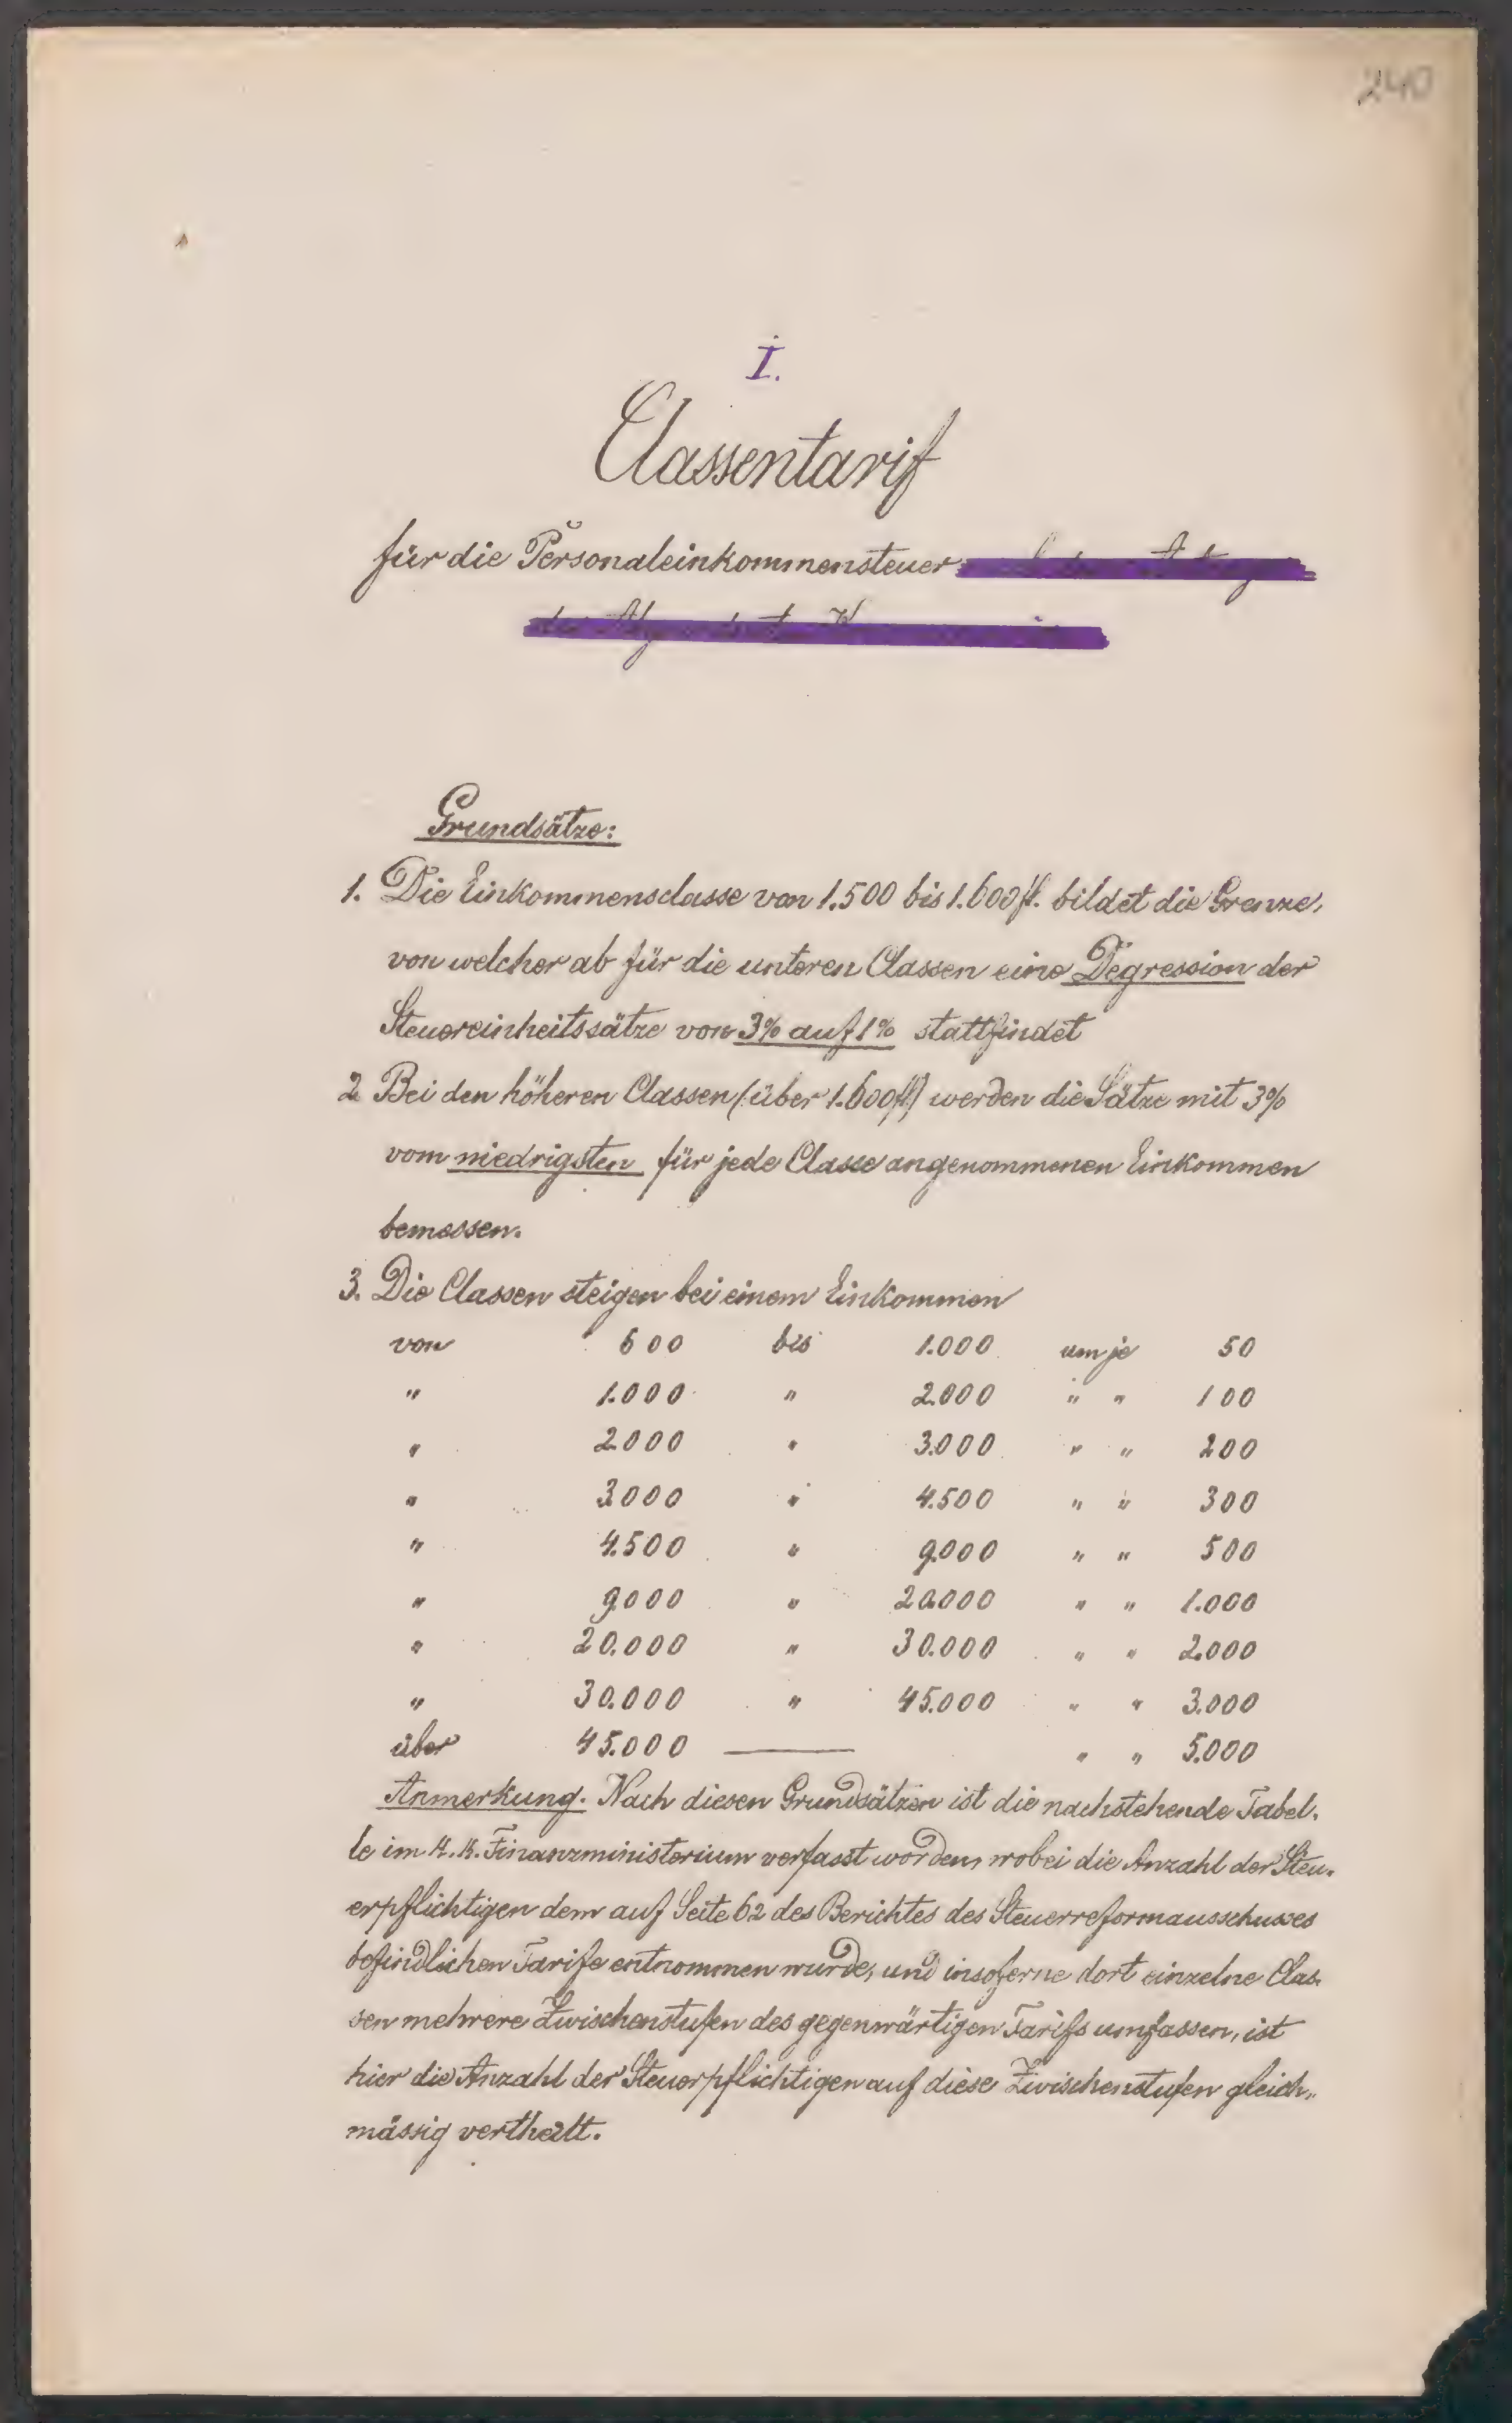 240
I.
Classentarif
für die Personaleinkommensteuer
Grundsätze:
1. Die Einkommensclasse von 1.500 bis 1.600 fl. bildet die Grenze,
von welcher ab für die unteren Classen eine Degression der
Steuereinheitssätze von 3% auf 1% stattfindet
2. Bei den höheren Classen (über 1.600 fl) werden die Sätze mit 3%
vom niedrigsten für jede Classe angenommenen Einkommen
bemessen.
3. Die Classen steigen bei einem Einkommen
von 600 bis 1.000 um je 50
" 1.000 " 2.000 " " 100
" 2000 " 3.000 " " 200
" 3000 " 4.500 " " 300
" 4.500 " 9.000 " " 500
" 9.000 " 20.000 " " 1.000
" 20.000 " 30.000 " " 2.000
" 30.000 " 45.000 " " 3.000
über 45.000 — " " 5.000
Anmerkung. Nach diesen Grundsätzen ist die nachstehende Tabel-
le im K. K. Finanzministerium verfasst worden, wobei die Anzahl der Steu-
erpflichtigen dem auf Seite 62 des Berichtes des Steuerreformausschusses
befindlichen Tarife entnommen wurde, und insoferne dort einzelne Clas-
sen mehrere Zwischenstufen des gegenwärtigen Tarifs umfassen, ist
hier die Anzahl der Steuerpflichtigen auf diese Zwischenstufen gleich-
mässig vertheilt.